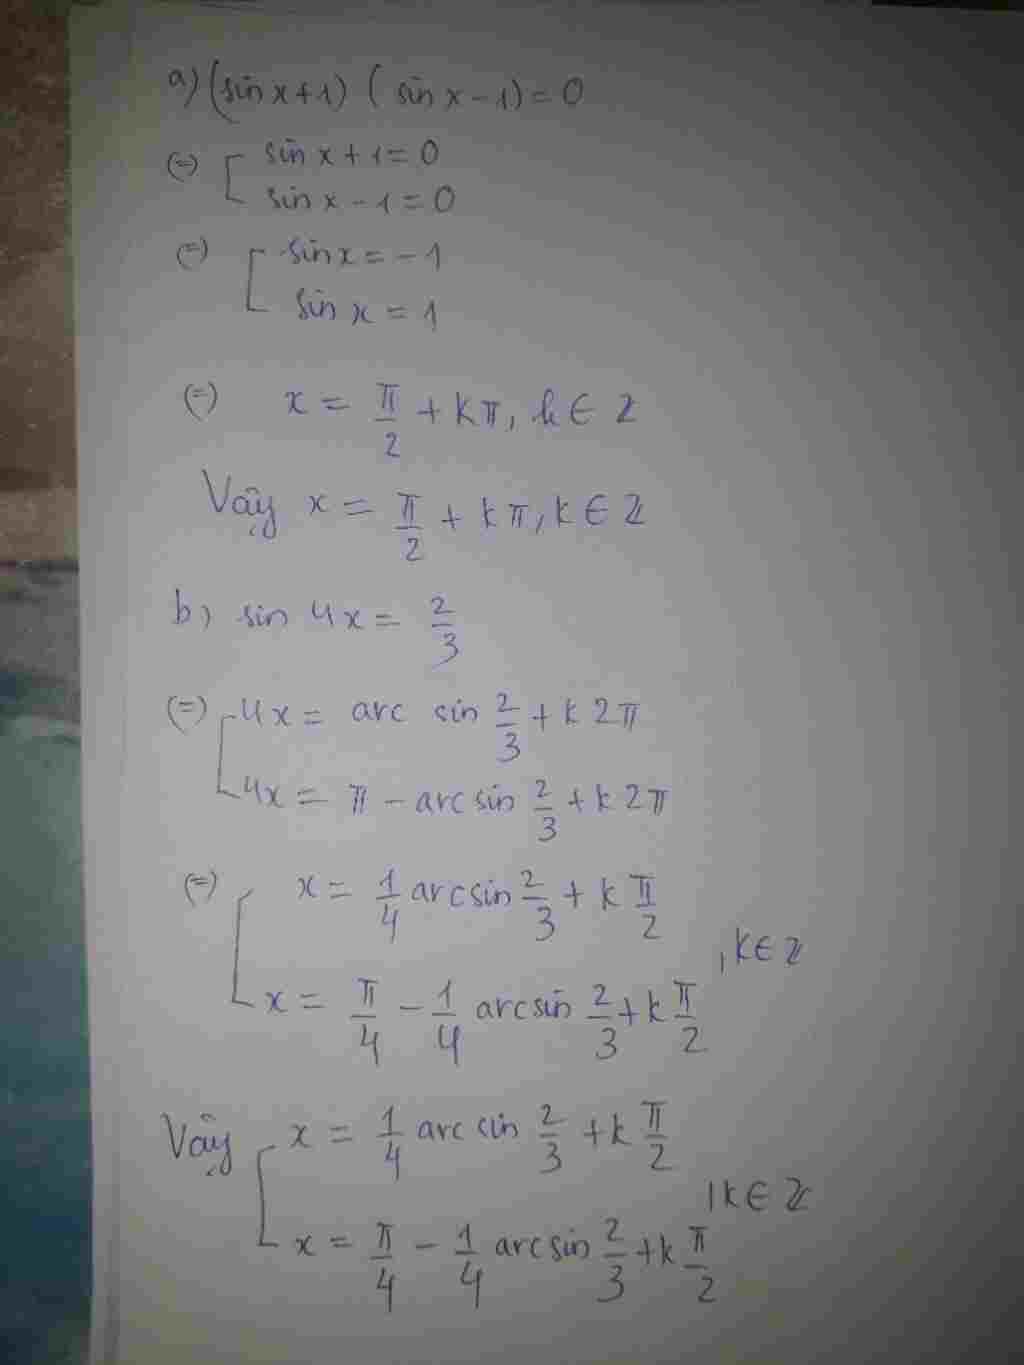 a) (sin x + 1) (sin x - 1) = 0
(=) [ sin x + 1 = 0
sin x - 1 = 0
(=) [ sin x = - 1
sin x = 1
(=) x = π/2 + kπ, k ∈ Z
Vậy x = π/2 + kπ, k ∈ Z
b) sin 4x = 2/3
(=) [ 4x = arc sin 2/3 + k2π
4x = π - arc sin 2/3 + k2π
(=) [ x = 1/4 arcsin 2/3 + k π/2
, k ∈ Z
x = π/4 - 1/4 arcsin 2/3 + k π/2
Vậy [ x = 1/4 arc sin 2/3 + k π/2
, k ∈ Z
x = π/4 - 1/4 arcsin 2/3 + k π/2